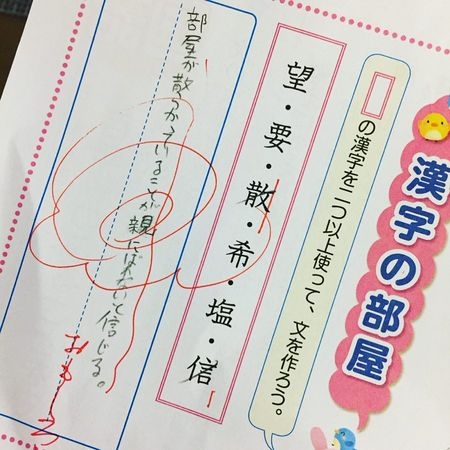 漢字の部屋
□の漢字を二つ以上使って、文を作ろう。
望・要・散・希・塩・信
部屋が散らかっていることが親にばれないと信じる。
おもしろい